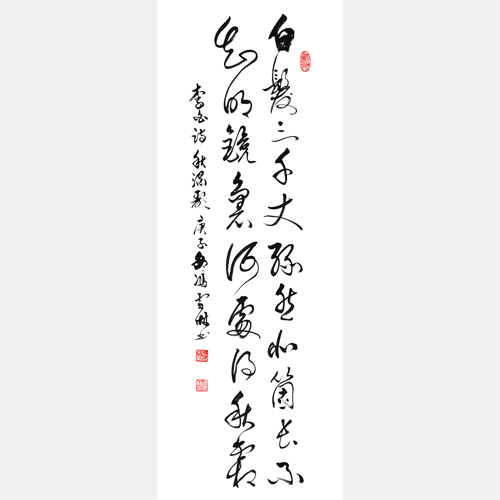 白髮三千丈緣愁似箇長不
知明鏡裏何處得秋霜
李白詩秋浦歌庚子冯書